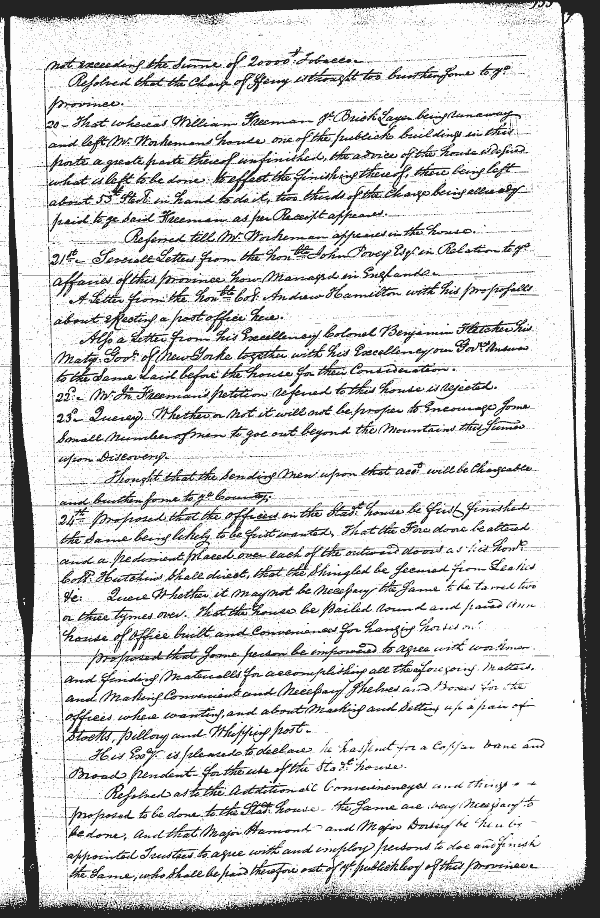 not exceeding the Sume of 20000.lb Tobacco
Resolved that the Charge of fferry is thought too burthensome to ye
province.
20 - That whereas William Freeman ye Brick Layer being runaway
and left Mr. Workemans house one of the publick buildings in this
porte a greate parte thereof unfinished, the advice of the house is desired
what is left to be done to effect the finishing thereof, there being left
about 53lb Sterl. in hand to do it, two thirds of the Charge being already
paid to ye said Freeman as per Receipt appeares.
Referred till Mr. Workeman appeares in the house.
21st - Severall Letters from the honble John Povey Esqr. in Relation to ye
affaires of this province how Managed in England.
A Letter from the honble Col. Andrew Hamilton with his proposalls
about effecting a post office here.
Also a Letter from his Excellency Colonel Benjamin Fletcher his
Matys. Govr. of New Yorke together with his Excellency our Govrs. Answer
to the Same Laid before the house for their Consideration.
22d. - Mr. Jn. Freeman's petition referred to this house is rejected.
23d - Querey. Whether or not it will not be proper to Encourage some
Small Number of men to goe out beyond the Mountains this Summer
upon Discovery.
Thought that the Sending Men upon that acct. will be Chargeable
and burthensome to ye Country;
24th proposed that the officers in the Stadt. house be first finished
the Same being likely to be first wanted, That the Fore doore be altered
and a pediment placed over each of the outward doors as his honr.
Coll. Hutchins shall direct, that the Shingled be Secured from Leakes
&c: Quere Whether it may not be Necessary the Same to be tarred two
or three tymes over. That the house be pailed round and paved an
house of office built and Conveniences for hanging horses on.
proposed that Some person be impowred to agree with workmen
and finding Materialls for accomplishing all the aforegoing matters,
and Making Convenient and Necessary Shelves and Boxes for the
offices where wanting, and about Making and Setting up a pair of
Stocks, pillory and Whipping post.
His Exy. is pleased to declare he has sent for a Copper vane and
Broad pendent for the use of the Stadt. house.
Resolved as to the Additional Conveniencyes and things
proposed to be done to the Stadt. house the Same are very necessary to
be done, and that Major Hamond and Major Dorsey be
appointed Trustees to agree with and imploy persons to doe and finish
the Same, who Shall be paid therefore out of ye publick levy of this province